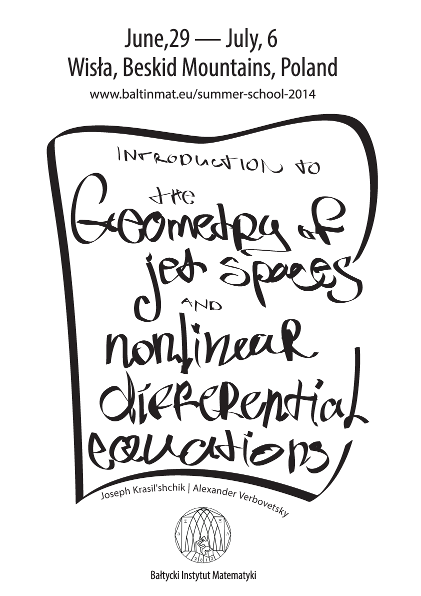 June,29 — July, 6
Wisła, Beskid Mountains, Poland
www.baltinmat.eu/summer-school-2014
INTRODUCTION to
the
Geometry of
jet spaces
AND
nonlinear
differential
equations
Joseph Krasil'shchik | Alexander Verbovetsky
Bałtycki Instytut Matematyki